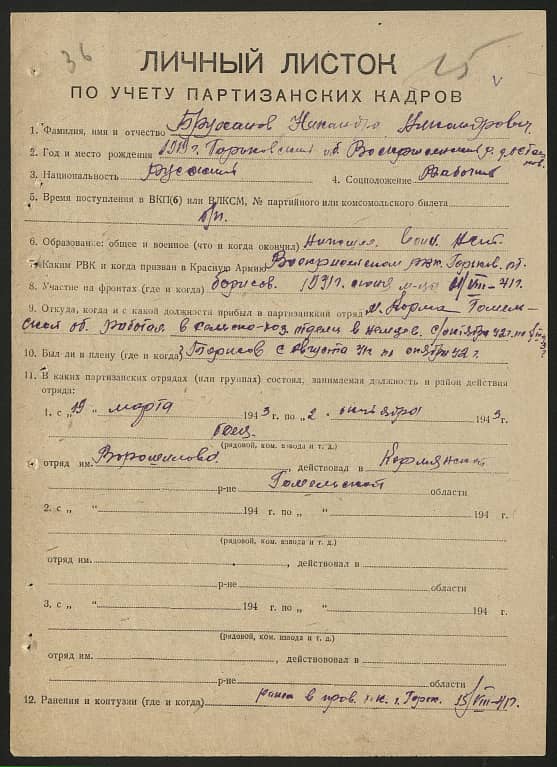 36
15
V
ЛИЧНЫЙ ЛИСТОК
ПО УЧЕТУ ПАРТИЗАНСКИХ КАДРОВ
1. Фамилия, имя и отчество Александрович
2. Год и место рождения 1919 г. Горьковская об. Воскресенский р.
3. Национальность Русский 4. Соцположение Рабочий
5. Время поступления в ВКП(б) или ВЛКСМ, № партийного или комсомольского билета
б/п.
6. Образование: общее и военное (что и когда окончил) Низшее. Воен. нет.
7. Каким РВК и когда призван в Красную Армию Воскресенском рвк. Горьк. об.
8. Участие на фронтах (где и когда) борисов. 1941 г. м-ца VIII-41 г.
9. Откуда, когда и с какой должности прибыл в партизанкий отряд м. Корма Гомель-
ской об. работал в сельско-хоз отделе в немцев. с октября 42 г. по
10. Был ли в плену (где и когда) Борисов с августа 41 по октябрь 42 г.
11. В каких партизанских отрядах (или группах) состоял, занимаемая должность и район действия
отряда:
1. с „ 19 “ марта 1943 г. по „ 2 “ октября 1943 г.
боец.
(рядовой, ком. взвода и т. д.)
отряд им. Ворошилова, действовал в Кормянской
р-не Гомельской области
2. с „ “ 194 г. по „ “ 194 г.
(рядовой, ком. взвода и т. д.)
отряд им. , действовал в
р-не области
3. с „ “ 194 г. по „ “ 194 г.
(рядовой, ком. взвода и т. д.)
отряд им. , действовал в
р-не области
12. Ранения и контузии (где и когда) ранен в прав. 15/VIII-41 г.